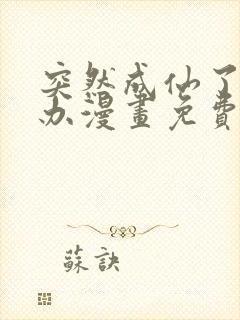 突然成仙了
办漫畫免費
蘇訣